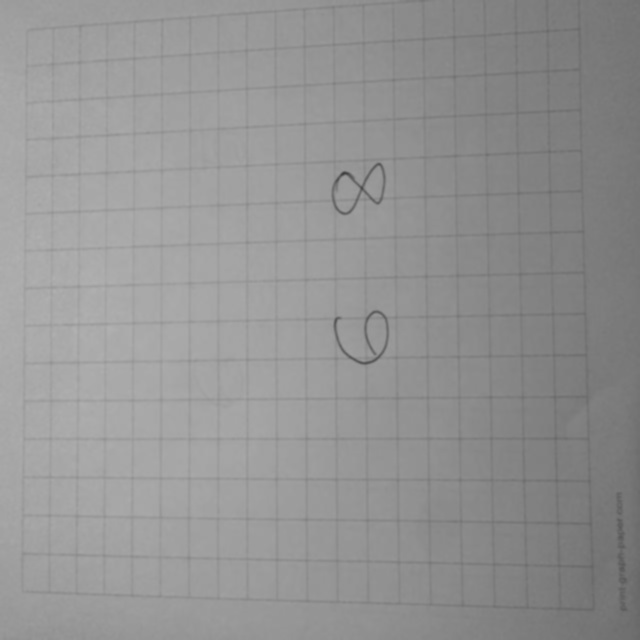 68
print-graph-paper.com